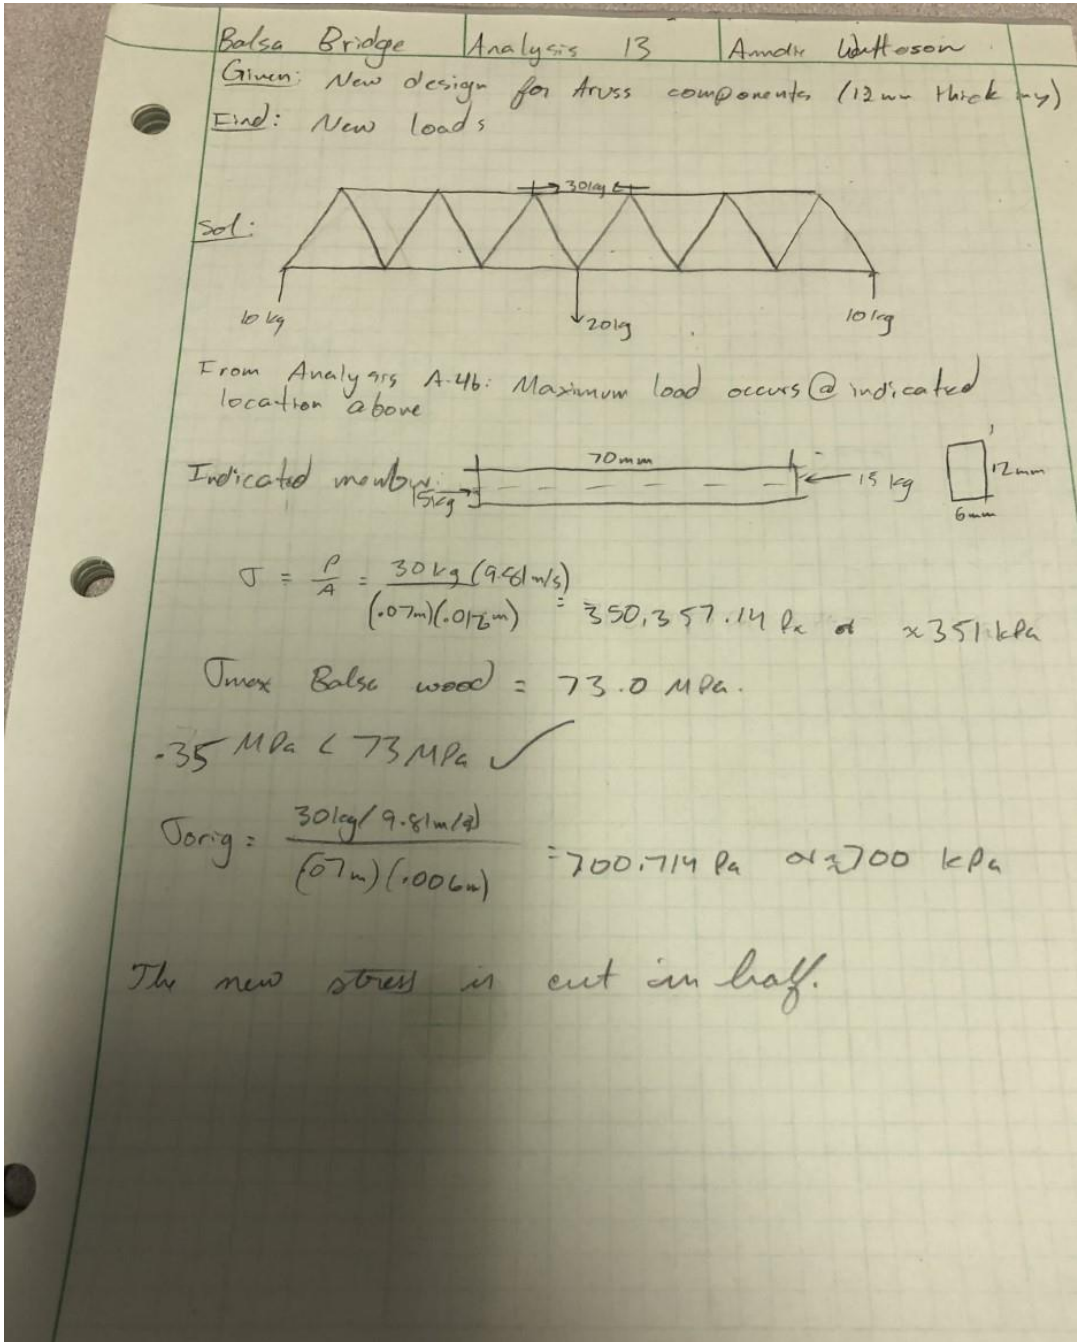 Balsa Bridge Analysis 13
Given: New design for truss components (12mm thick
Find: New loads
→ 30kg ←
Sol:
10 kg
20kg
10 kg
From Analysis A.4b: Maximum load occurs @ indicated
location above
Indicated member:
15kg
70mm
15 kg
12mm
6mm
σ = P/A = 30kg (9.81m/s) / (.07m)(.012m) = 350,357.14 Pa or ≈351 kPa
σmax Balsa wood = 73.0 MPa.
.35 MPa < 73 MPa ✓
σorig = 30kg(9.81m/s) / (.07m)(.006m) = 700,714 Pa or ≈700 kPa
The new stress is cut in half.